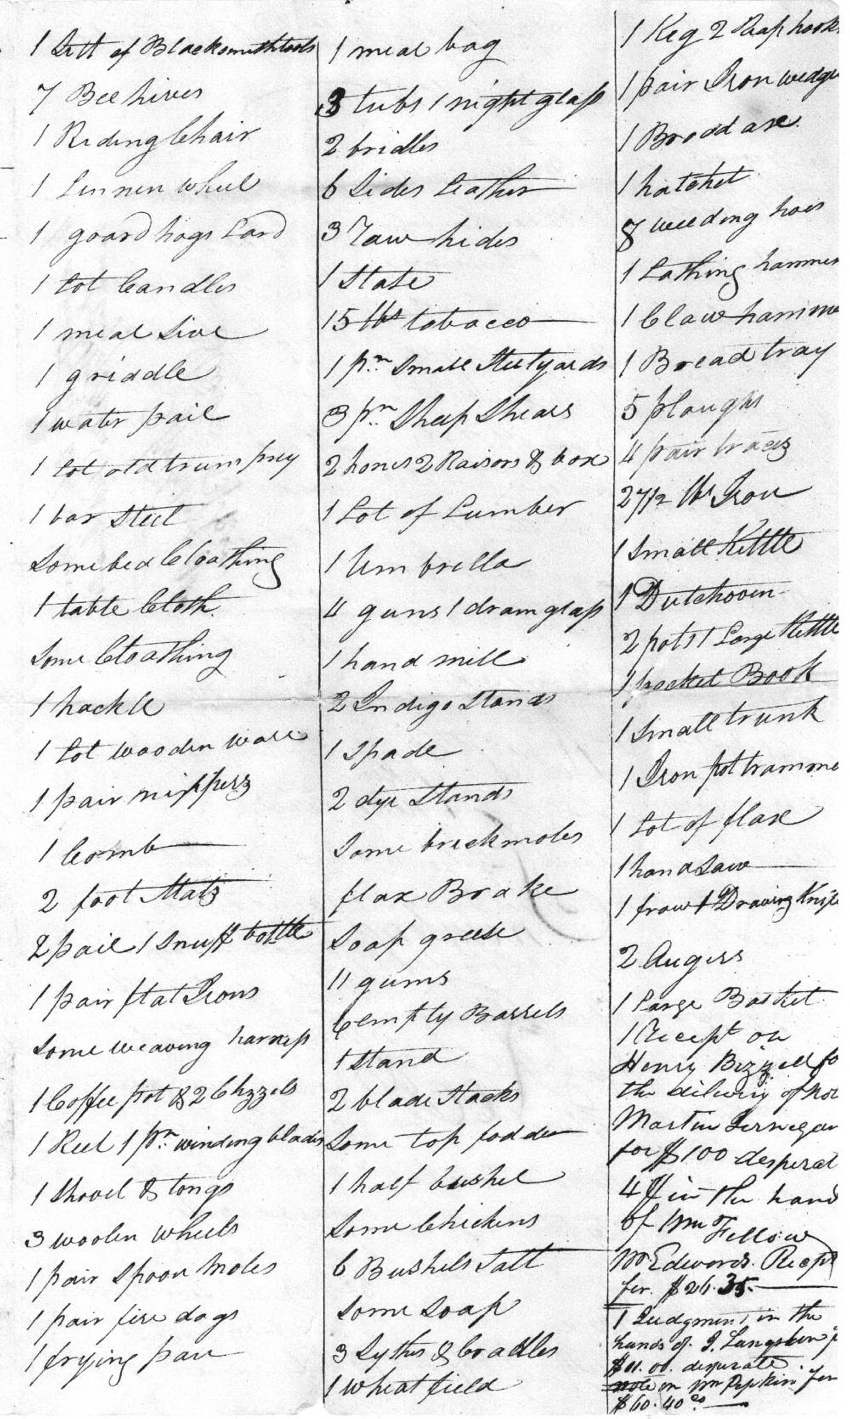 1 Sett of Blacksmith tools
7 Bee hives
1 Riding Chair
1 Linnen wheel
1 goard hogs Lard
1 Lot Candles
1 meal Sive
1 griddle
1 water pail
1 Lot old trumpry
1 bar Steel
Some bed Cloathing
1 table Cloth
Some Cloathing
1 hackle
1 Lot wooden ware
1 pair nippers
1 Comb
2 foot Matts
2 pail 1 Snuff bottle
1 pair flat Irons
Some weaving harness
1 Coffee pot & 2 Chizzels
1 Reel 1 pr. winding blads
1 Shovel & tongs
3 woolen wheels
1 pair Spoon moles
1 pair fire dogs
1 frying pan
1 meal bag
3 tubs 1 night glass
2 bridles
6 Sides Leather
3 raw hides
1 Slate
15 lbs tobacco
1 pr. Small Steelyards
3 pr. Sheep Shears
2 hones 2 Raisors & box
1 Lot of Lumber
1 Umbrella
4 guns 1 dram glass
1 hand mill
2 Indigo Stands
1 Spade
2 dye Stands
Some brick moles
flax Brake
Soap greese
11 gums
6 empty Barrels
1 Stand
2 blade Stacks
Some top fodder
1 half bushel
Some Chickens
6 Bushels Salt
Some Soap
3 Sythes & Cradles
1 wheat field
1 Keg 2 Reap hooks
1 pair Iron wedges
1 Broad axe
1 hatchet
8 weeding hoes
1 Lathing hammer
1 Claw hamme
1 Bread tray
5 ploughs
4 pair traces
27 1/2 lbs Iron
1 Small Kettle
1 Dutch oven
2 pots 1 Large Kettle
1 pocket Book
1 Small trunk
1 Iron pot tramme
1 Lot of flax
1 hand Saw
1 frow 1 Drawing Knife
2 Augers
1 Large Basket
1 Recept on
Henry Bizzell fo
the dilivery of not
Martin Jernegan
for $100 desperat
4 in the hand
of Wm Fellow
Wm Edwards Recept
for $26.35
1 Judgment in the
hands of J. Langston f
desperate
note on Wm Pipkin for
$60.40